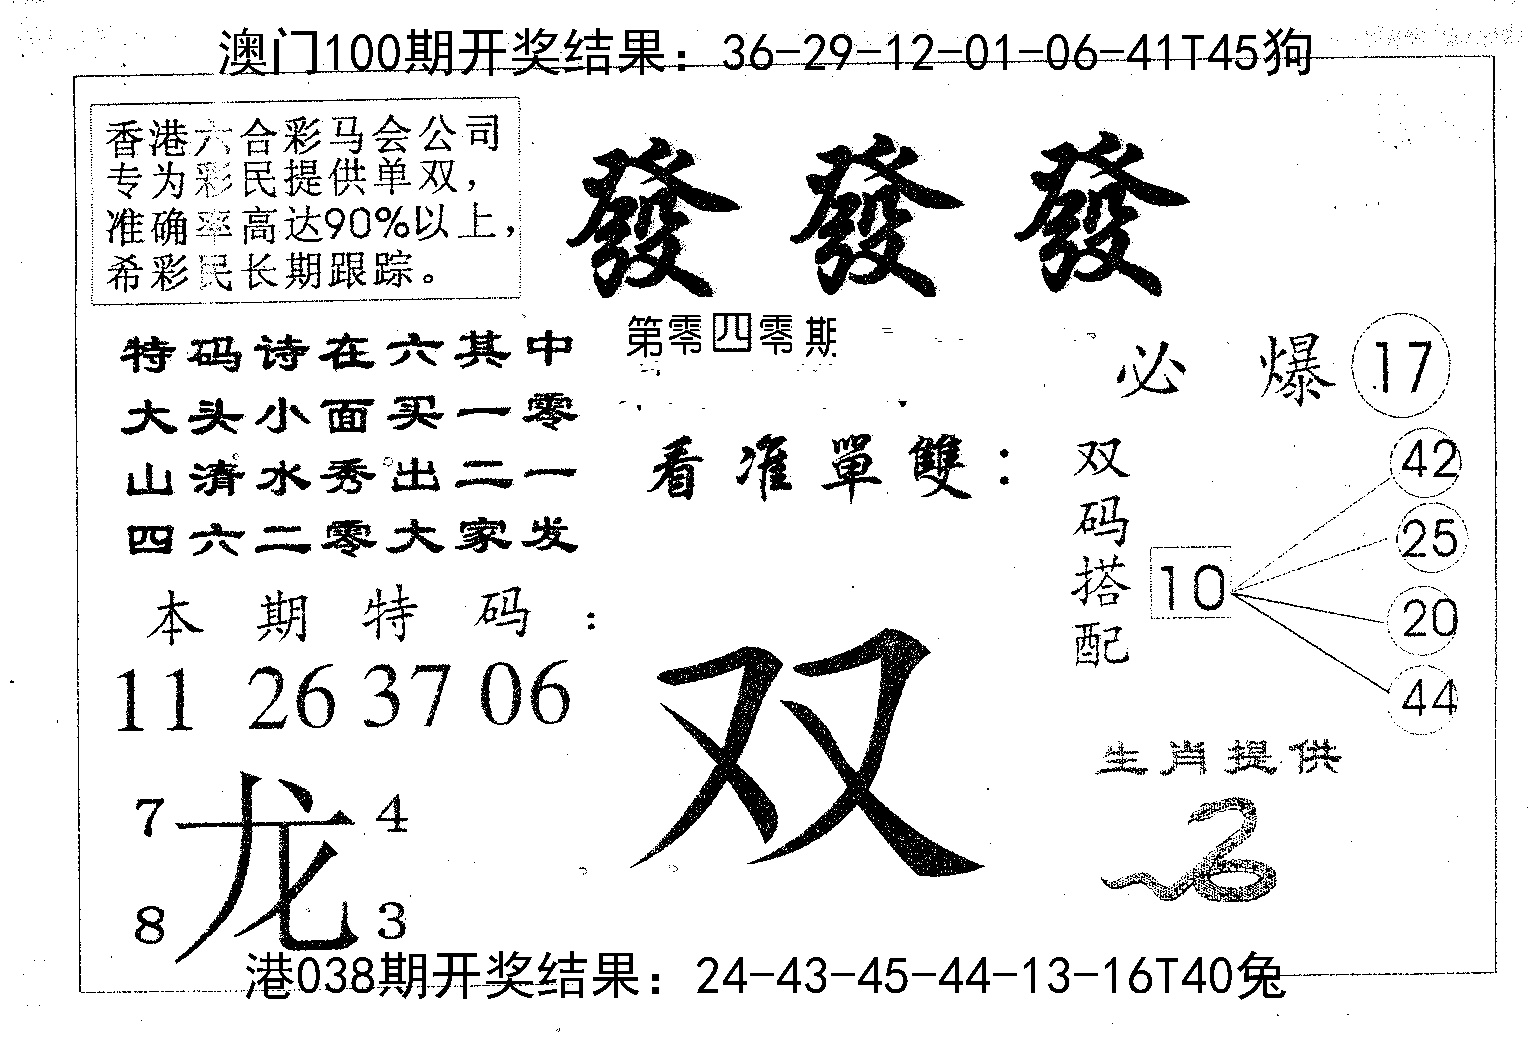 澳门100期开奖结果：36-29-12-01-06-41T45狗
香港六合彩马会公司
专为彩民提供单双，
准确率高达90%以上，
希彩民长期跟踪。
發 發 發
第零四零期
特码诗在六其中
大头小面买一零
山清水秀出二一
四六二零大家发
必 爆 17
看准單雙：
双
双码搭配
10
42
25
20
44
本期特码：
11 26 37 06
7 4
龙
8 3
生肖提供
港038期开奖结果：24-43-45-44-13-16T40兔